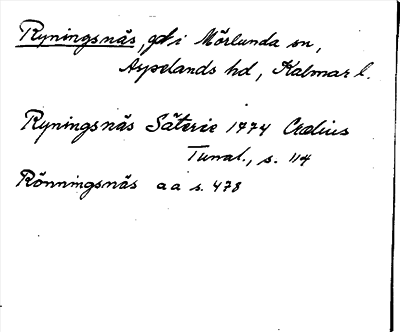 Ryningsnäs, gd i Mörlunda sn,
Aspelands hd, Kalmar l.
Ryningsnäs Säterie 1774 Craelius
Tunal., s. 114
Rönningsnäs a a s. 478